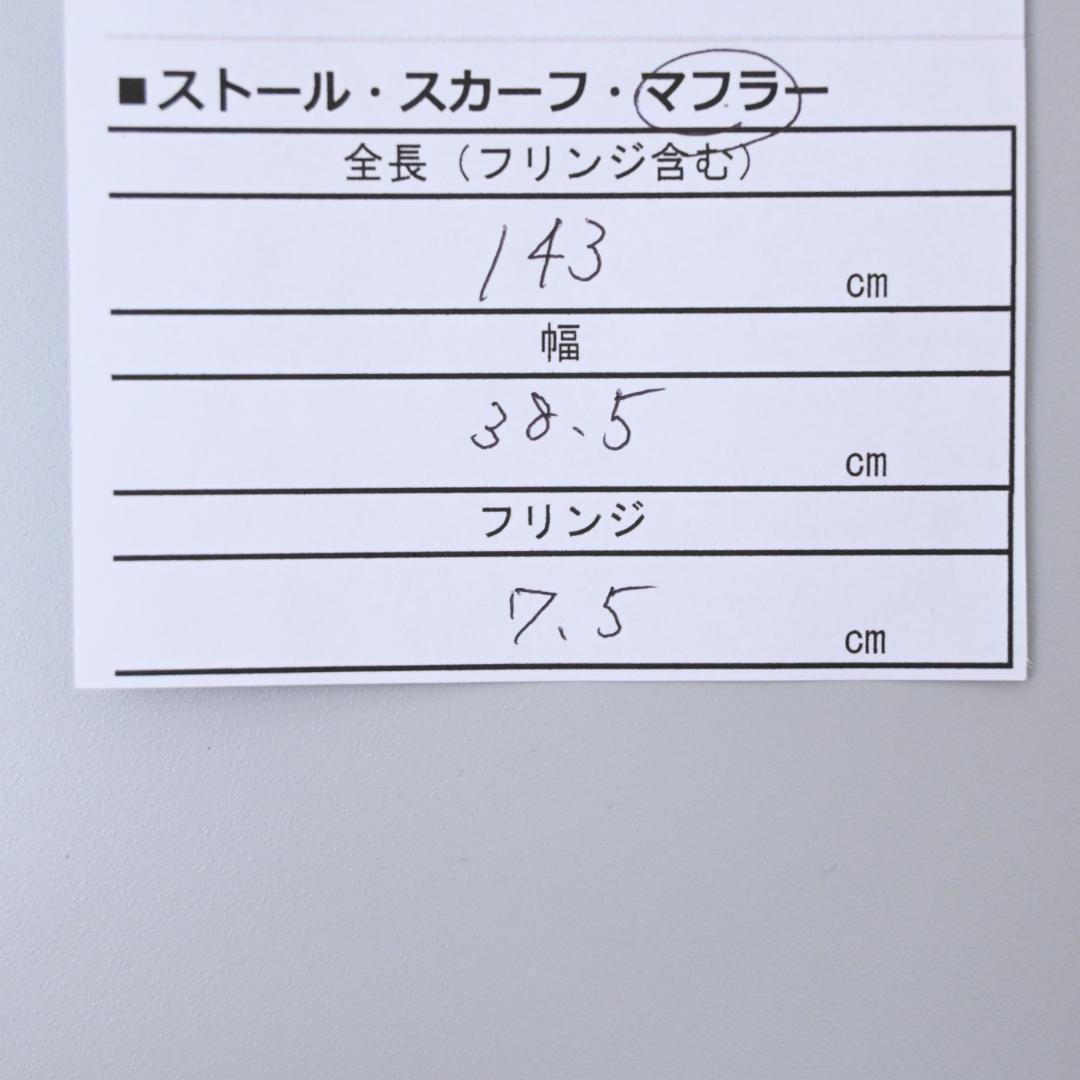 ■ストール・スカーフ・マフラー
全長（フリンジ含む）
143 cm
幅
38.5 cm
フリンジ
7.5 cm